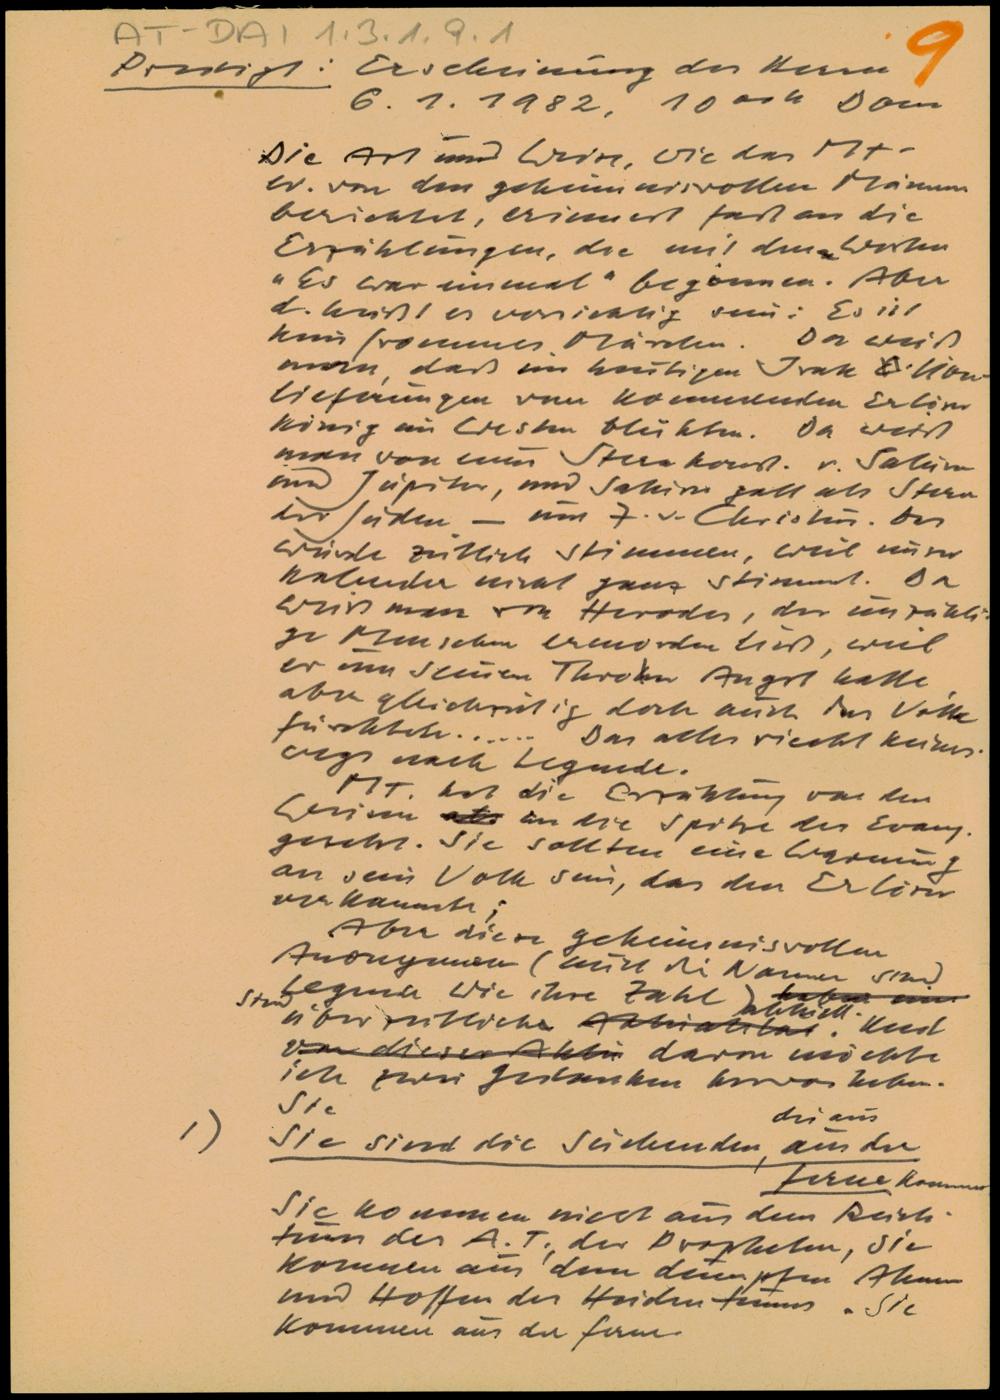 AT-DAI 1.3.1.9.1
9
Predigt: Erscheinung des Herrn
6. 1. 1982, 10 Dom
Die Art und Weise, wie das Mt-
Ev. von den geheimnisvollen Männern
berichtet, erinnert fast an die
Erzählungen, die mit den Worten
"Es war einmal" beginnen. Aber
d. heißt es vorsichtig sein: Es ist
kein frommes Märchen. Da weiß
man, daß im heutigen Irak Über-
lieferungen vom kommenden Erlöser
König im Westen blühten. Da weiß
man von einer Sternkonst. v. Saturn
und Jupiter, und Saturn galt als Stern
der Juden — um 7. v. Christus. Das
würde zeitlich stimmen, weil unser
Kalender nicht ganz stimmt. Da
weiß man von Herodes, der unzähli-
ge Menschen ermorden ließ, weil
er um seinen Thron Angst hatte
aber gleichzeitig doch auch das Volk
fürchtete...... Das alles riecht keines-
wegs nach Legende.
Mt. hat die Erzählung von den
Weisen an die Spitze des Evang.
gesetzt. Sie sollten eine Warnung
an sein Volk sein, das den Erlöser
verkannte;
Aber diese geheimnisvollen
Anonymen (auch die Namen sind
Legende wie ihre Zahl) haben eine
sind überzeitliche Aktualität. aktuell. Und
von dieser davon möchte
ich zwei Gedanken hervorheben.
Sie
1) Sie sind die Suchenden, die aus aus der
Ferne kommen
Sie kommen nicht aus dem Reich-
tum des A.T., der Propheten, Sie
kommen aus dem dumpfen Ahnen
und Hoffen des Heidentums. Sie
kommen aus der Ferne.